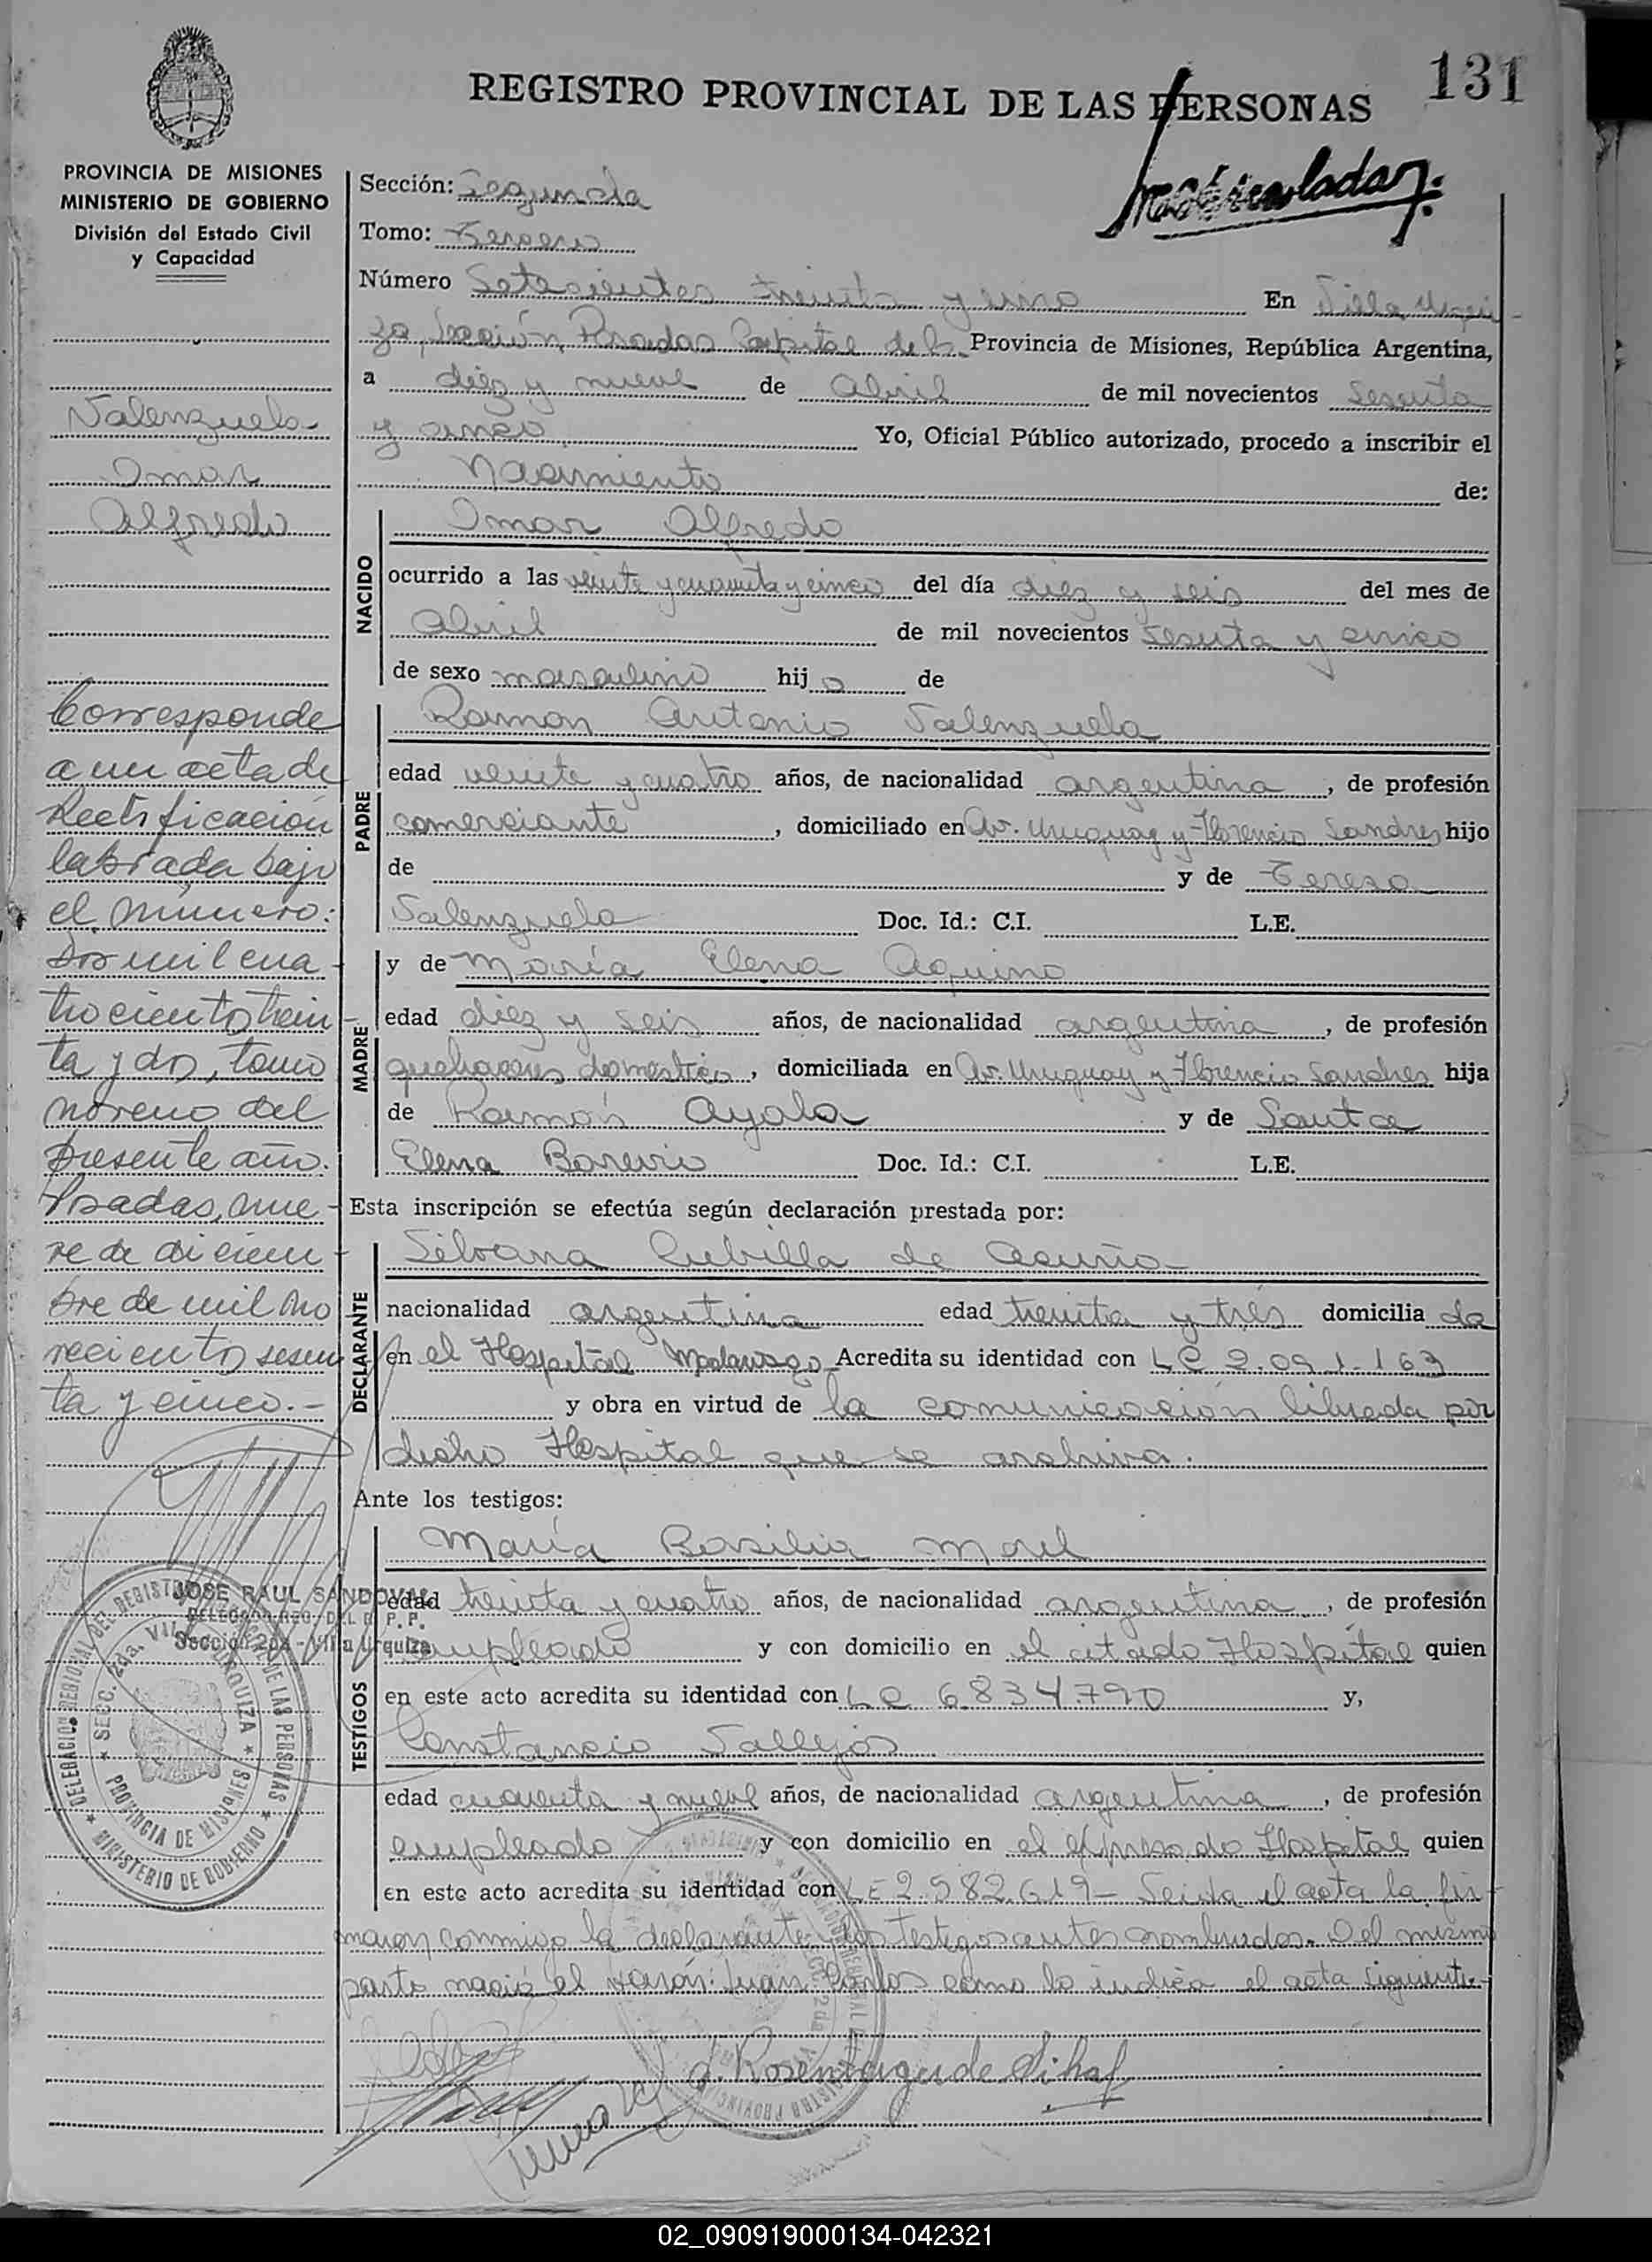 131
REGISTRO PROVINCIAL DE LAS PERSONAS
Matriculado
PROVINCIA DE MISIONES
MINISTERIO DE GOBIERNO
División del Estado Civil
y Capacidad
Valenzuela
Omar
Alfredo
Corresponde
a un acta de
Rectificación
labrada bajo
el número:
Dos mil cua-
trociento trein-
ta y dos, tomo
noveno del
presente año.
Posadas, nue-
ve de diciem-
bre de mil no
veciento sesen-
ta y cinco.-
JOSE RAUL SANDOVAL
DELEGADO REG. DEL R. P. P.
Sección 2da - Villa Urquiza
DELEGACION REGIONAL DEL REGISTRO DE LAS PERSONAS
SECC. 2da. VILLA URQUIZA
PROVINCIA DE MISIONES
MINISTERIO DE GOBIERNO
Sección: Segunda
Tomo: Tercero
Número Setecientos treinta y uno En Villa Urqui-
za, Sección Posadas Capital de la Provincia de Misiones, República Argentina,
a diez y nueve de Abril de mil novecientos sesenta
y cinco Yo, Oficial Público autorizado, procedo a inscribir el
Nacimiento de:
NACIDO
Omar Alfredo
ocurrido a las veinte y cuarenta y cinco del día diez y seis del mes de
Abril de mil novecientos sesenta y cinco
de sexo masculino hijo de
PADRE
Ramon Antonio Valenzuela
edad veinte y cuatro años, de nacionalidad argentina, de profesión
comerciante, domiciliado en Av. Uruguay y Florencio Sandres hijo
de y de Teresa
Valenzuela Doc. Id.: C.I. L.E.
MADRE
y de María Elena Aquino
edad diez y seis años, de nacionalidad argentina, de profesión
quehaceres domestico, domiciliada en Av. Uruguay y Florencio Sanches hija
de Ramón Ayala y de Santa
Elena Doc. Id.: C.I. L.E.
Esta inscripción se efectúa según declaración prestada por:
DECLARANTE
Silvana Cubilla de Acuña
nacionalidad argentina edad treinta y tres domiciliada
en el Hospital Acredita su identidad con LC 2.091.163
y obra en virtud de la comunicación librada por
dicho Hospital que se archiva.
Ante los testigos:
TESTIGOS
María Basilia Morel
edad treinta y cuatro años, de nacionalidad argentina, de profesión
empleado y con domicilio en el citado Hospital quien
en este acto acredita su identidad con LC 6.834.790 y,
Constancio Vallejos
edad cuarenta y nueve años, de nacionalidad argentina, de profesión
empleado y con domicilio en el expresado Hospital quien
en este acto acredita su identidad con LE 2.582.619- Leida el acta la fir-
maron conmigo la declarante y los testigos antes nombrados. Del mismo
parto nació el varón: Juan Carlos como lo indica el acta siguiente.
02_090919000134-042321